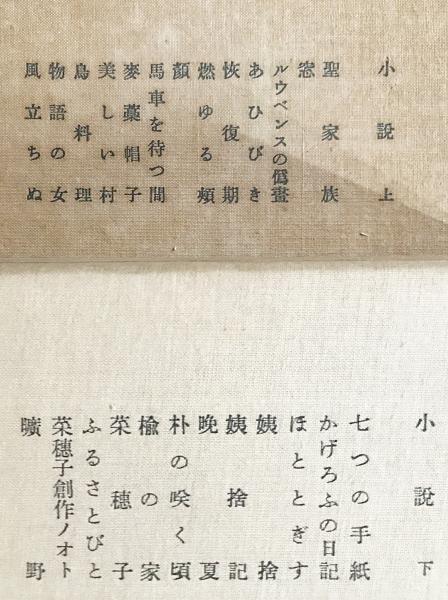 小説上
聖家族
窓
ルウベンスの僞畫
あひびき
恢復期
燃ゆる頰
顏
馬車を待つ間
麥藁帽子
美しい村
鳥料理
物語の女
風立ちぬ
小説下
七つの手紙
かげろふの日記
ほととぎす
姨捨
姨捨記
晩夏
朴の咲く頃
楡の家
菜穗子
ふるさとびと
菜穗子創作ノオト
曠野